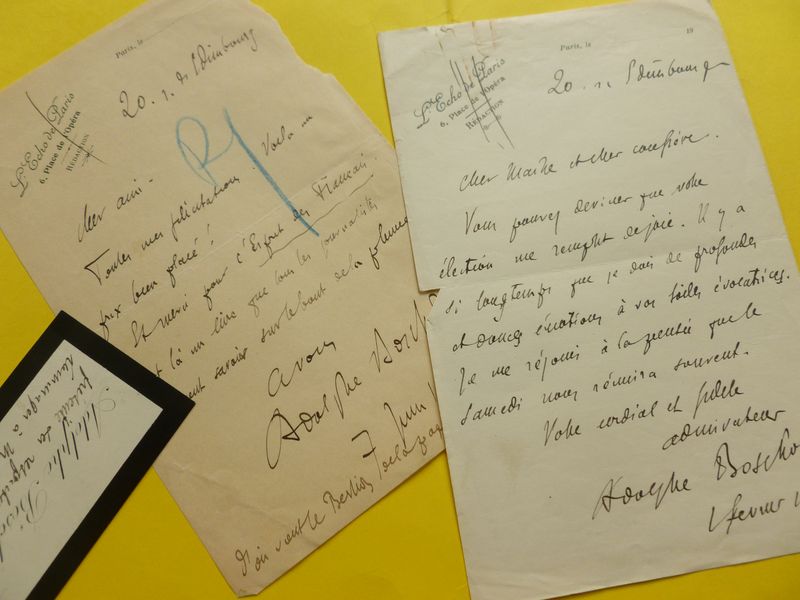 Paris, le
L'Echo de Paris
6, Place de l'Opéra
RÉDACTION
20. r. de Luxembourg
Cher ami -
Toutes mes félicitations. Voilà un
prix bien placé !
Et merci pour l'Esprit des Français.
là un livre que tous les journalistes
savoir sur le bout de la plume
Adolphe Bosch
7 Juin
D'où vont le
Paris, le 19
L'Echo de Paris
6, Place de l'Opéra
RÉDACTION
20. r. Luxembourg
Cher Maître et cher confrère.
Vous pouvez deviner que votre
élection me remplit de joie. Il y a
si longtemps que je dois de profondes
et douces émotions à vos toiles évocatrices.
Je me réjouis à la pensée que le
Samedi nous réunira souvent.
Votre cordial et fidèle
admirateur
Adolphe Boscho
février
Adolphe
présente ses respectu
hommages à M